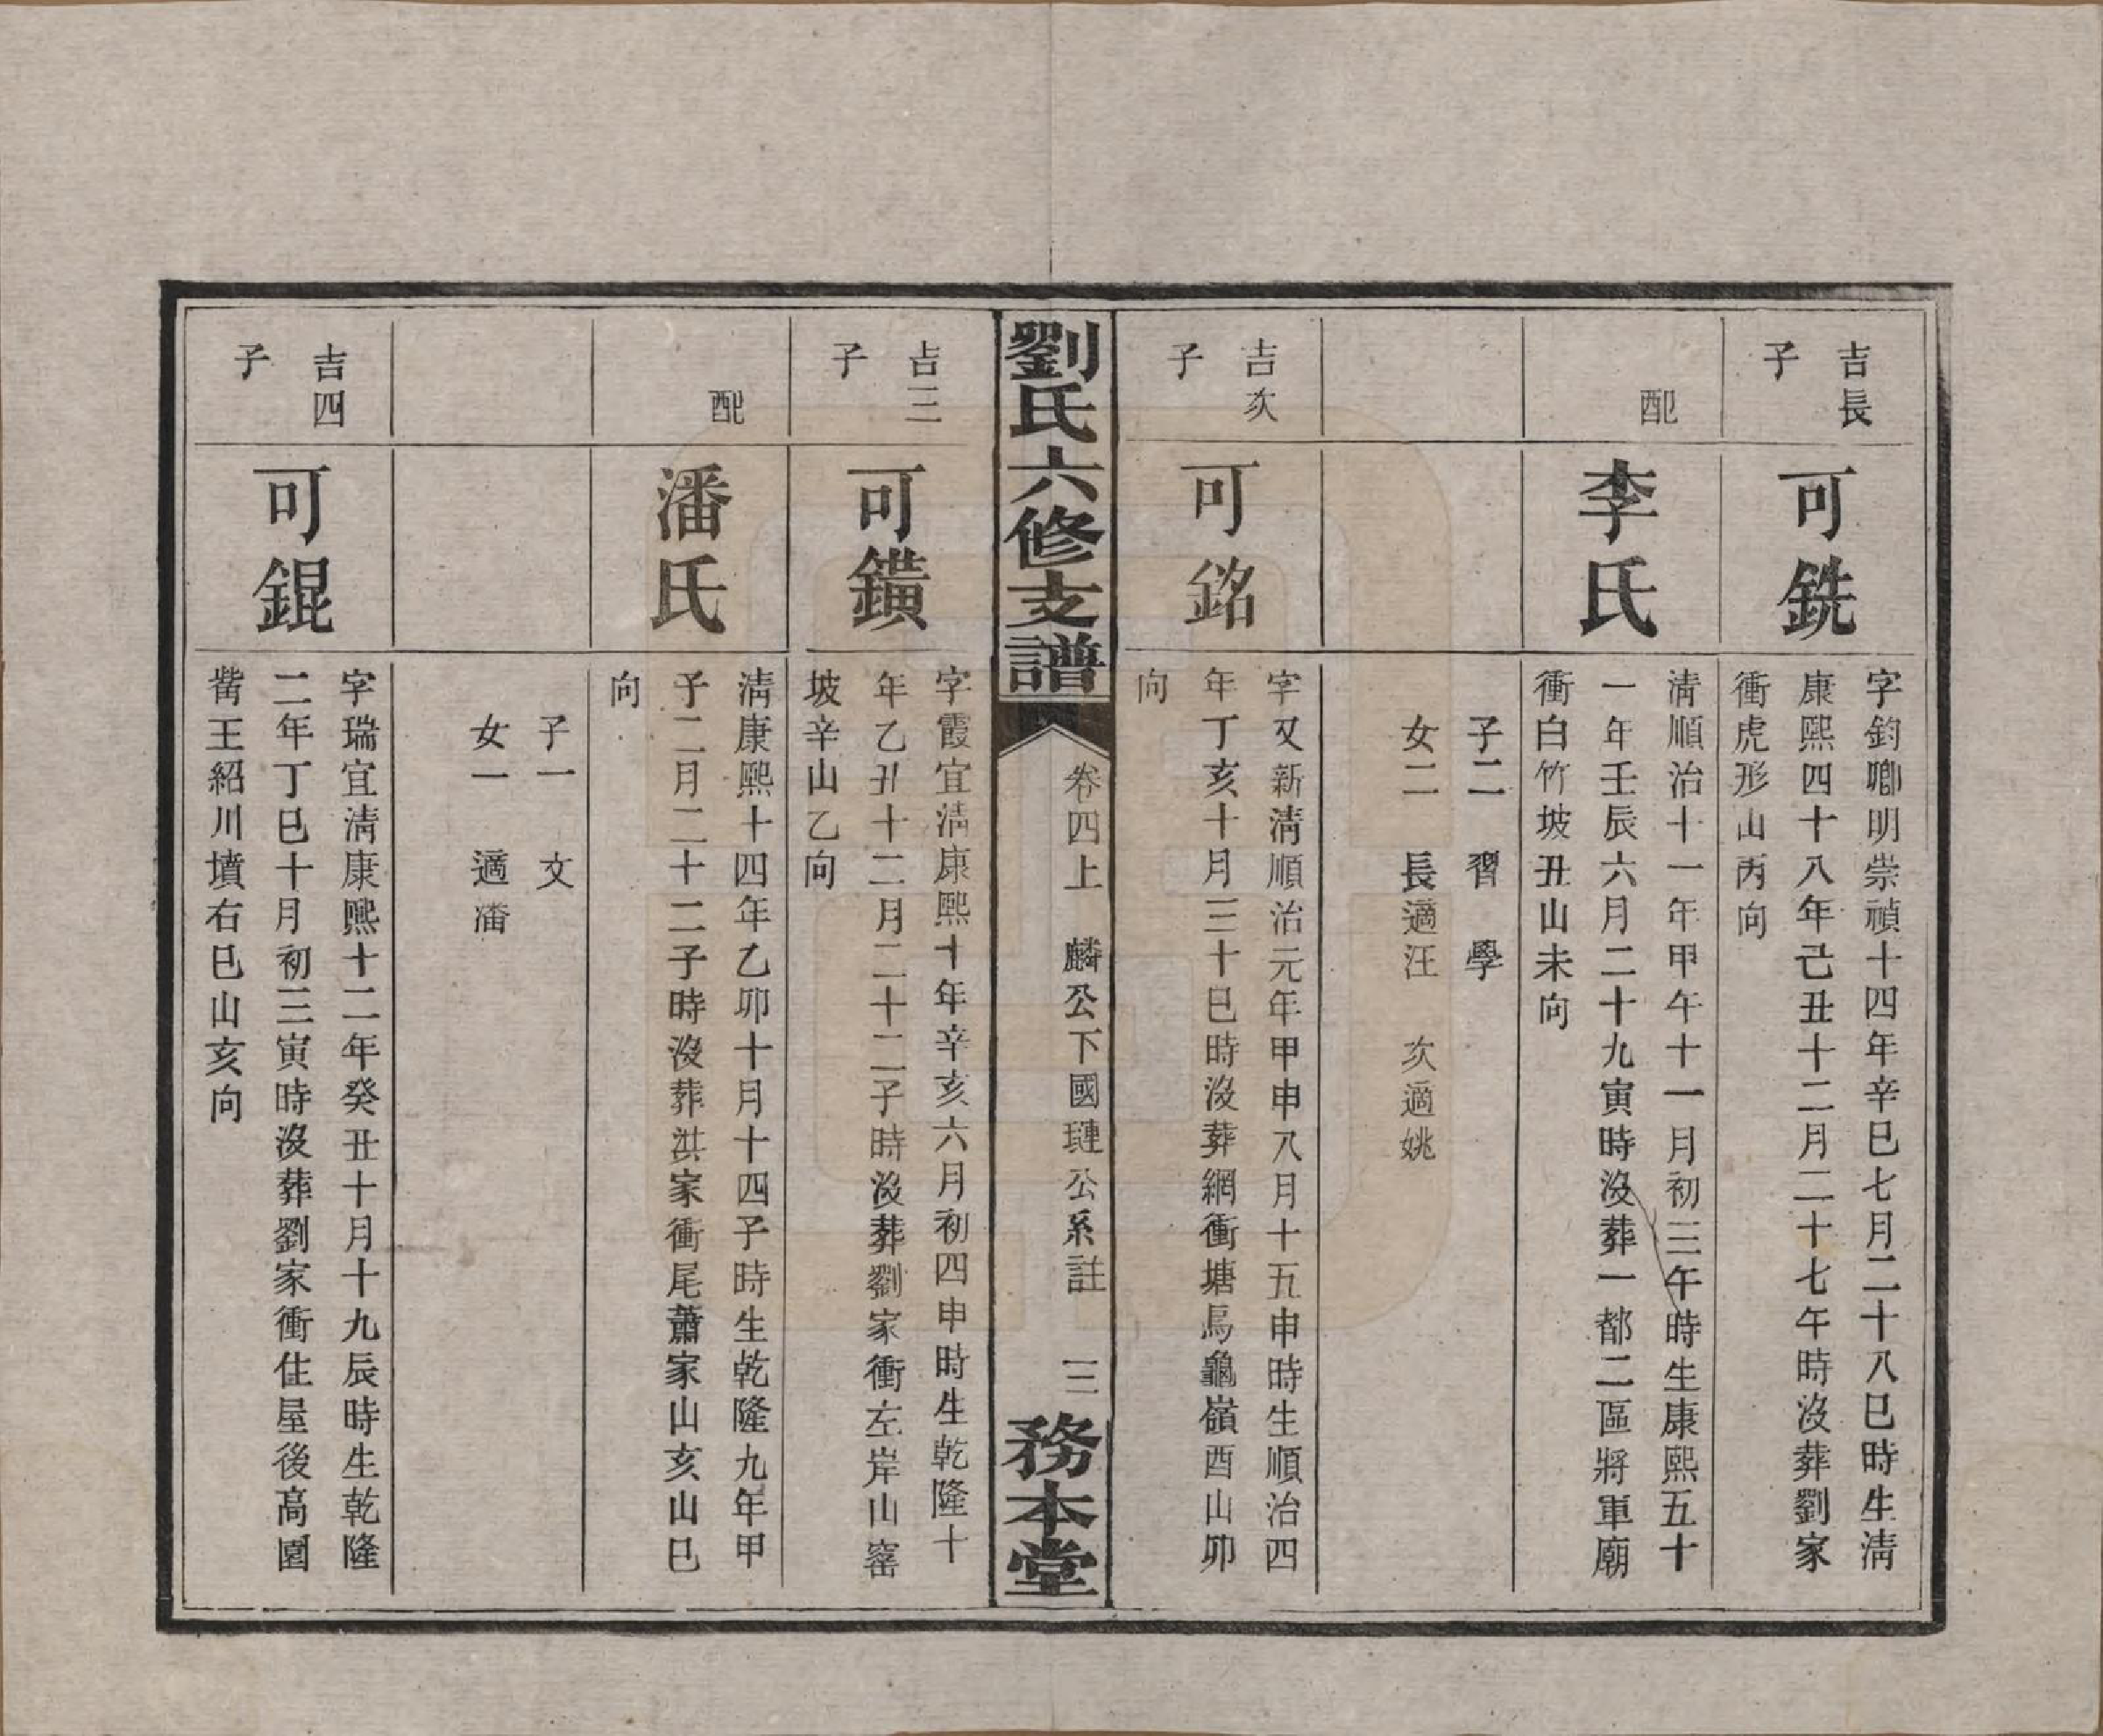 吉長
子
可銑
字鈞卿明崇禎十四年辛巳七月二十八巳時生清
康熙四十八年己丑十二月二十七午時沒葬劉家
衝虎形山丙向
配
李氏
清順治十一年甲午十一月初三午時生康熙五十
一年壬辰六月二十九寅時沒葬一都二區將軍廟
衝白竹坡丑山未向
子二 習 學
女二 長適汪 次適姚
吉次
子
可銘
字又新清順治元年甲申八月十五申時生順治四
年丁亥十月三十巳時沒葬網衝塘烏龜嶺酉山卯
向
劉氏六修支譜
卷四上 麟公下國璉公系註 三
務本堂
吉三
子
可鐄
字霞宜清康熙十年辛亥六月初四申時生乾隆十
年乙丑十二月二十二子時沒葬劉家衝左岸山窰
坡辛山乙向
配
潘氏
清康熙十四年乙卯十月十四子時生乾隆九年甲
子二月二十二子時沒葬洪家衝尾蕭家山亥山巳
向
子一 文
女一 適潘
吉四
子
可錕
字瑞宜清康熙十二年癸丑十月十九辰時生乾隆
二年丁巳十月初三寅時沒葬劉家衝住屋後高園
嘴王紹川墳右巳山亥向